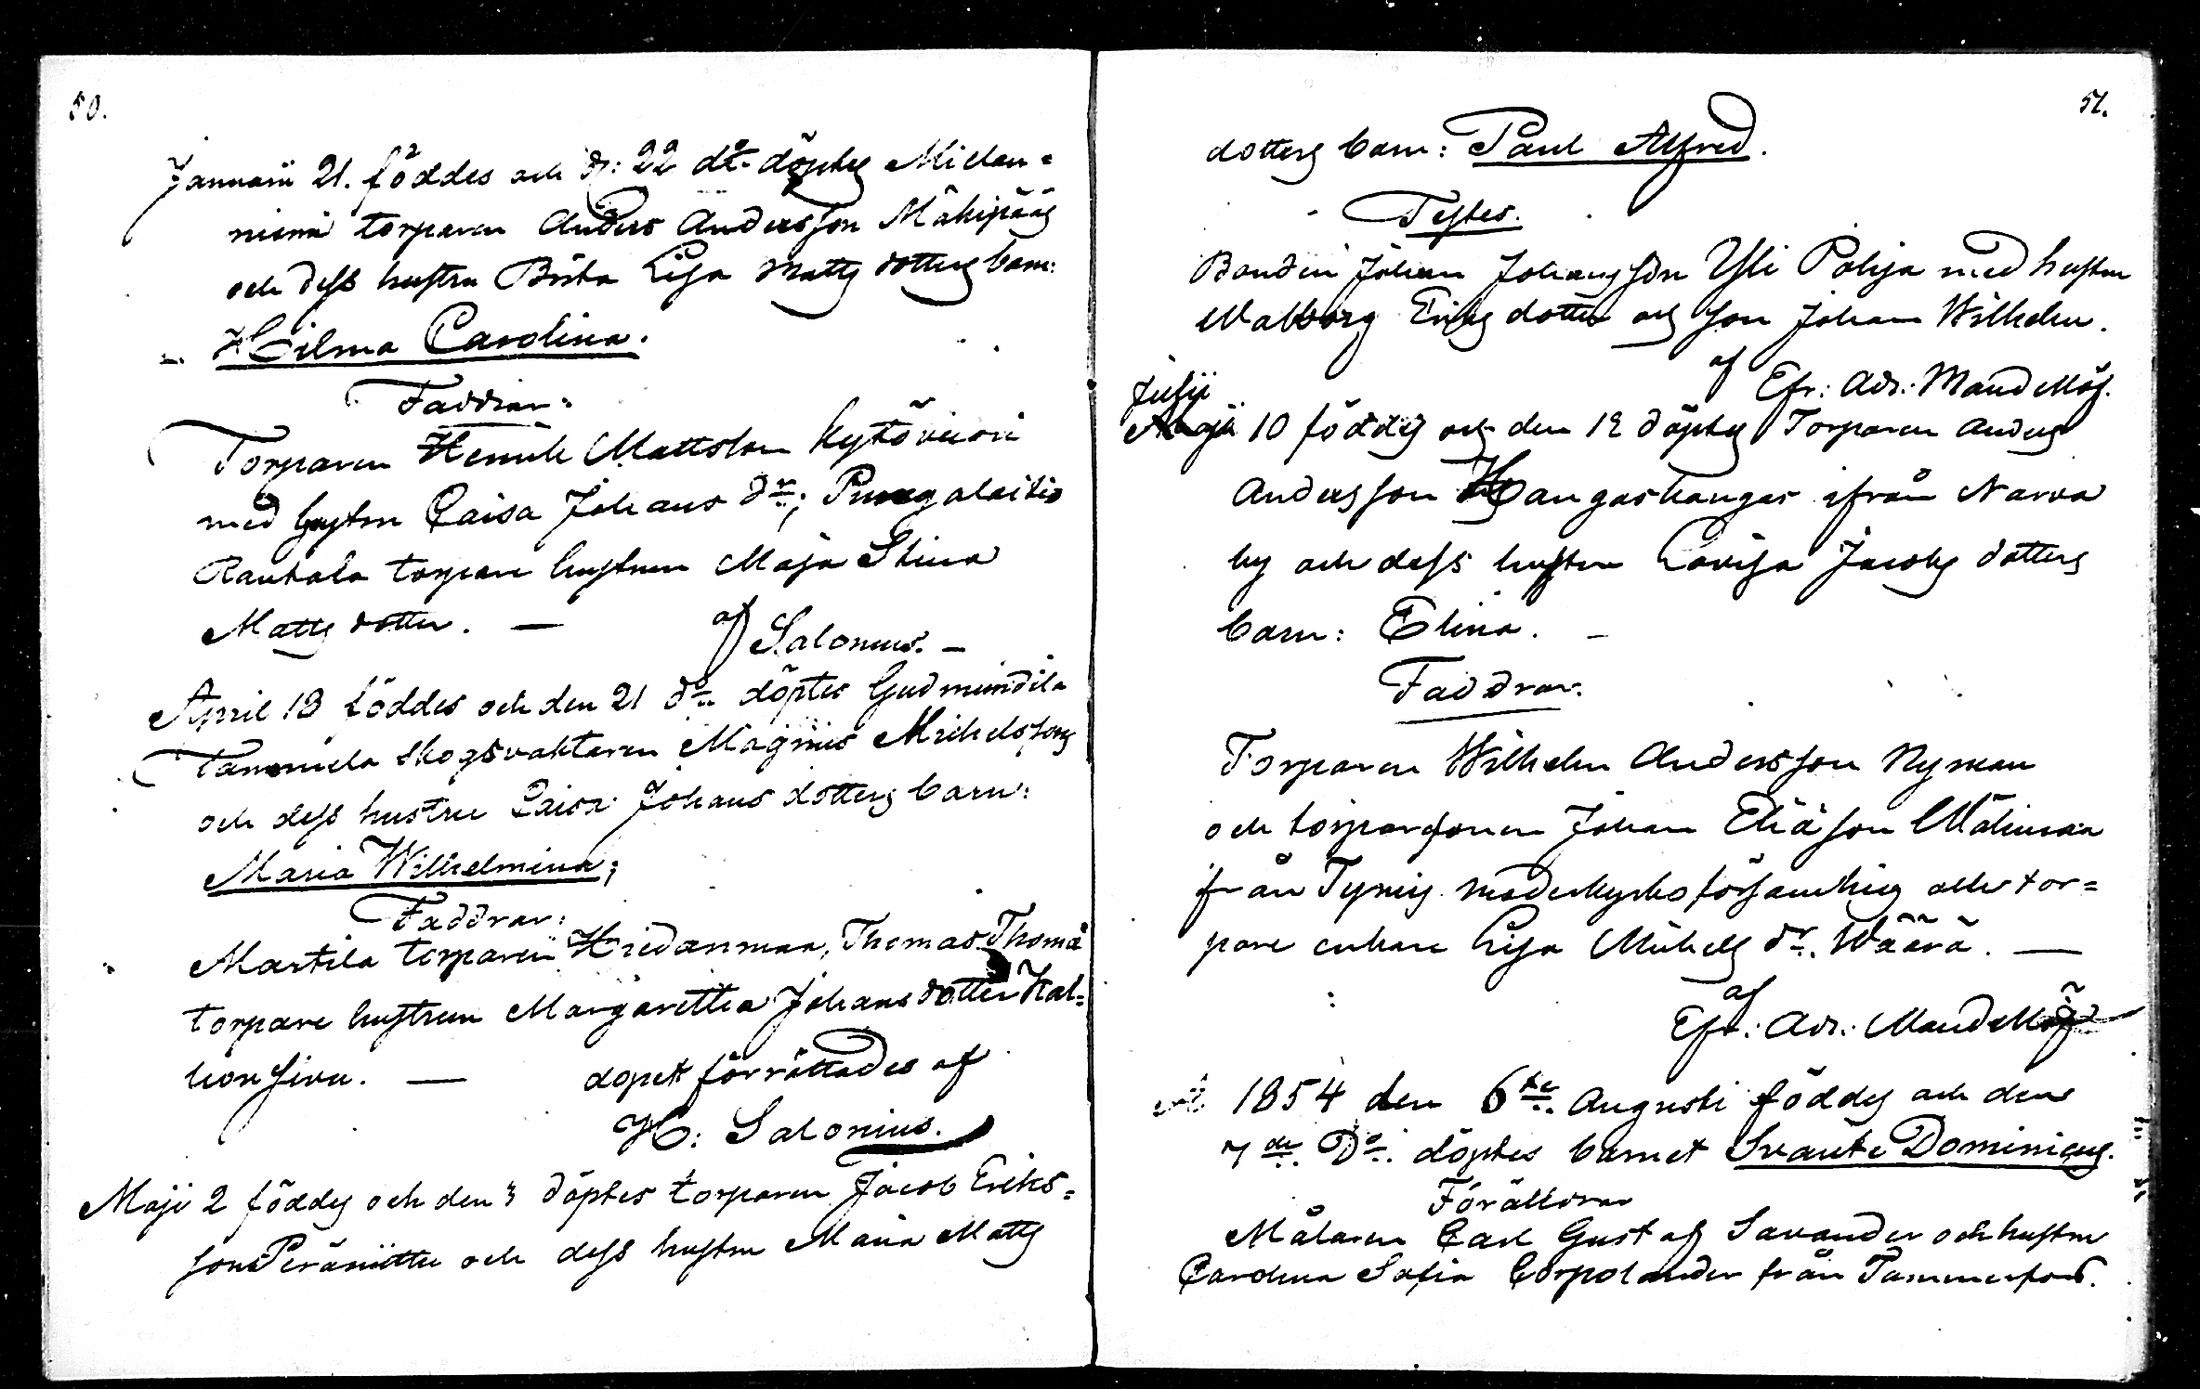 50.
Januarii 21. föddes och d: 22 dt. döptes Miclan=
niemi torparen Anders Andersson Mäkipääs
och dess hustru Brita Lisa Matts dotters barn:
Hilma Carolina.
Faddrar:
Torparen Henrik Mattsson Kytövuori
med hustru Caisa Johans dr; Pungalaitio
Rautala torpare hustrun Maja Stina
Matts dotter. —
af Salonius. —
April 18 föddes och den 21 do döptes Gudmundila
Tammela skogsvaktaren Magnus Michelssons
och dess hustru Caisa Johans dotters barn:
Maria Wilhelmina;
Faddrar:
Martila torparen Hiedanmaa, Thomas Thomä
torpare hustrun Margaretha Johans dotter Kal=
lionsivu. — dopet förrättades af
H: Salonius.
Maji 2 föddes och den 3 döptes torparen Jacob Eriks=
sons Peräniittu och dess hustru Maria Matts
51.
dotters barn: Paul Alfred.
Testes.
Bonden Johan Johansson Yli Pohja med hustru
Walborg Eriks dotter och son Johan Wilhelm.
af Efr: Adr: MandeMös.
Julii
10 föddes och den 12 döptes Torparen Anders
Andersson Hangaskangas ifrån Narva
by och dess hustru Lovisa Jacobs dotters
barn: Elina. —
Faddrar.
Torparen Wilhelm Andersson Nyman
och torparsonen Johan Eliäson Mälimaa
från Tyrnis moderkyrko församling eller tor=
pare enkan Lisa Michels dr. Wäärä. —
af
Efr: Adr: MandeMös
1854 den 6te Augusti föddes och den
7de Do. döptes barnet Svante Dominicus.
Förälldrar
Målaren Carl Gustaf Savander och hustru
Carolina Sofia Corpolander från Tammerfors.